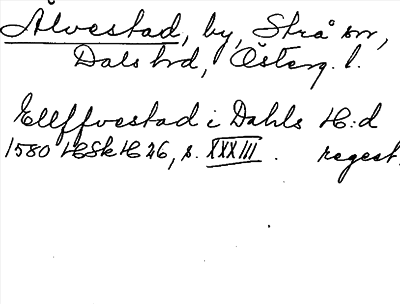 Ålvestad, by, Strå sn,
Dals hd, Österg. l.
Ellffvestad i Dahls H:d
1580 HSkH 26, s. XXXIII. regest.